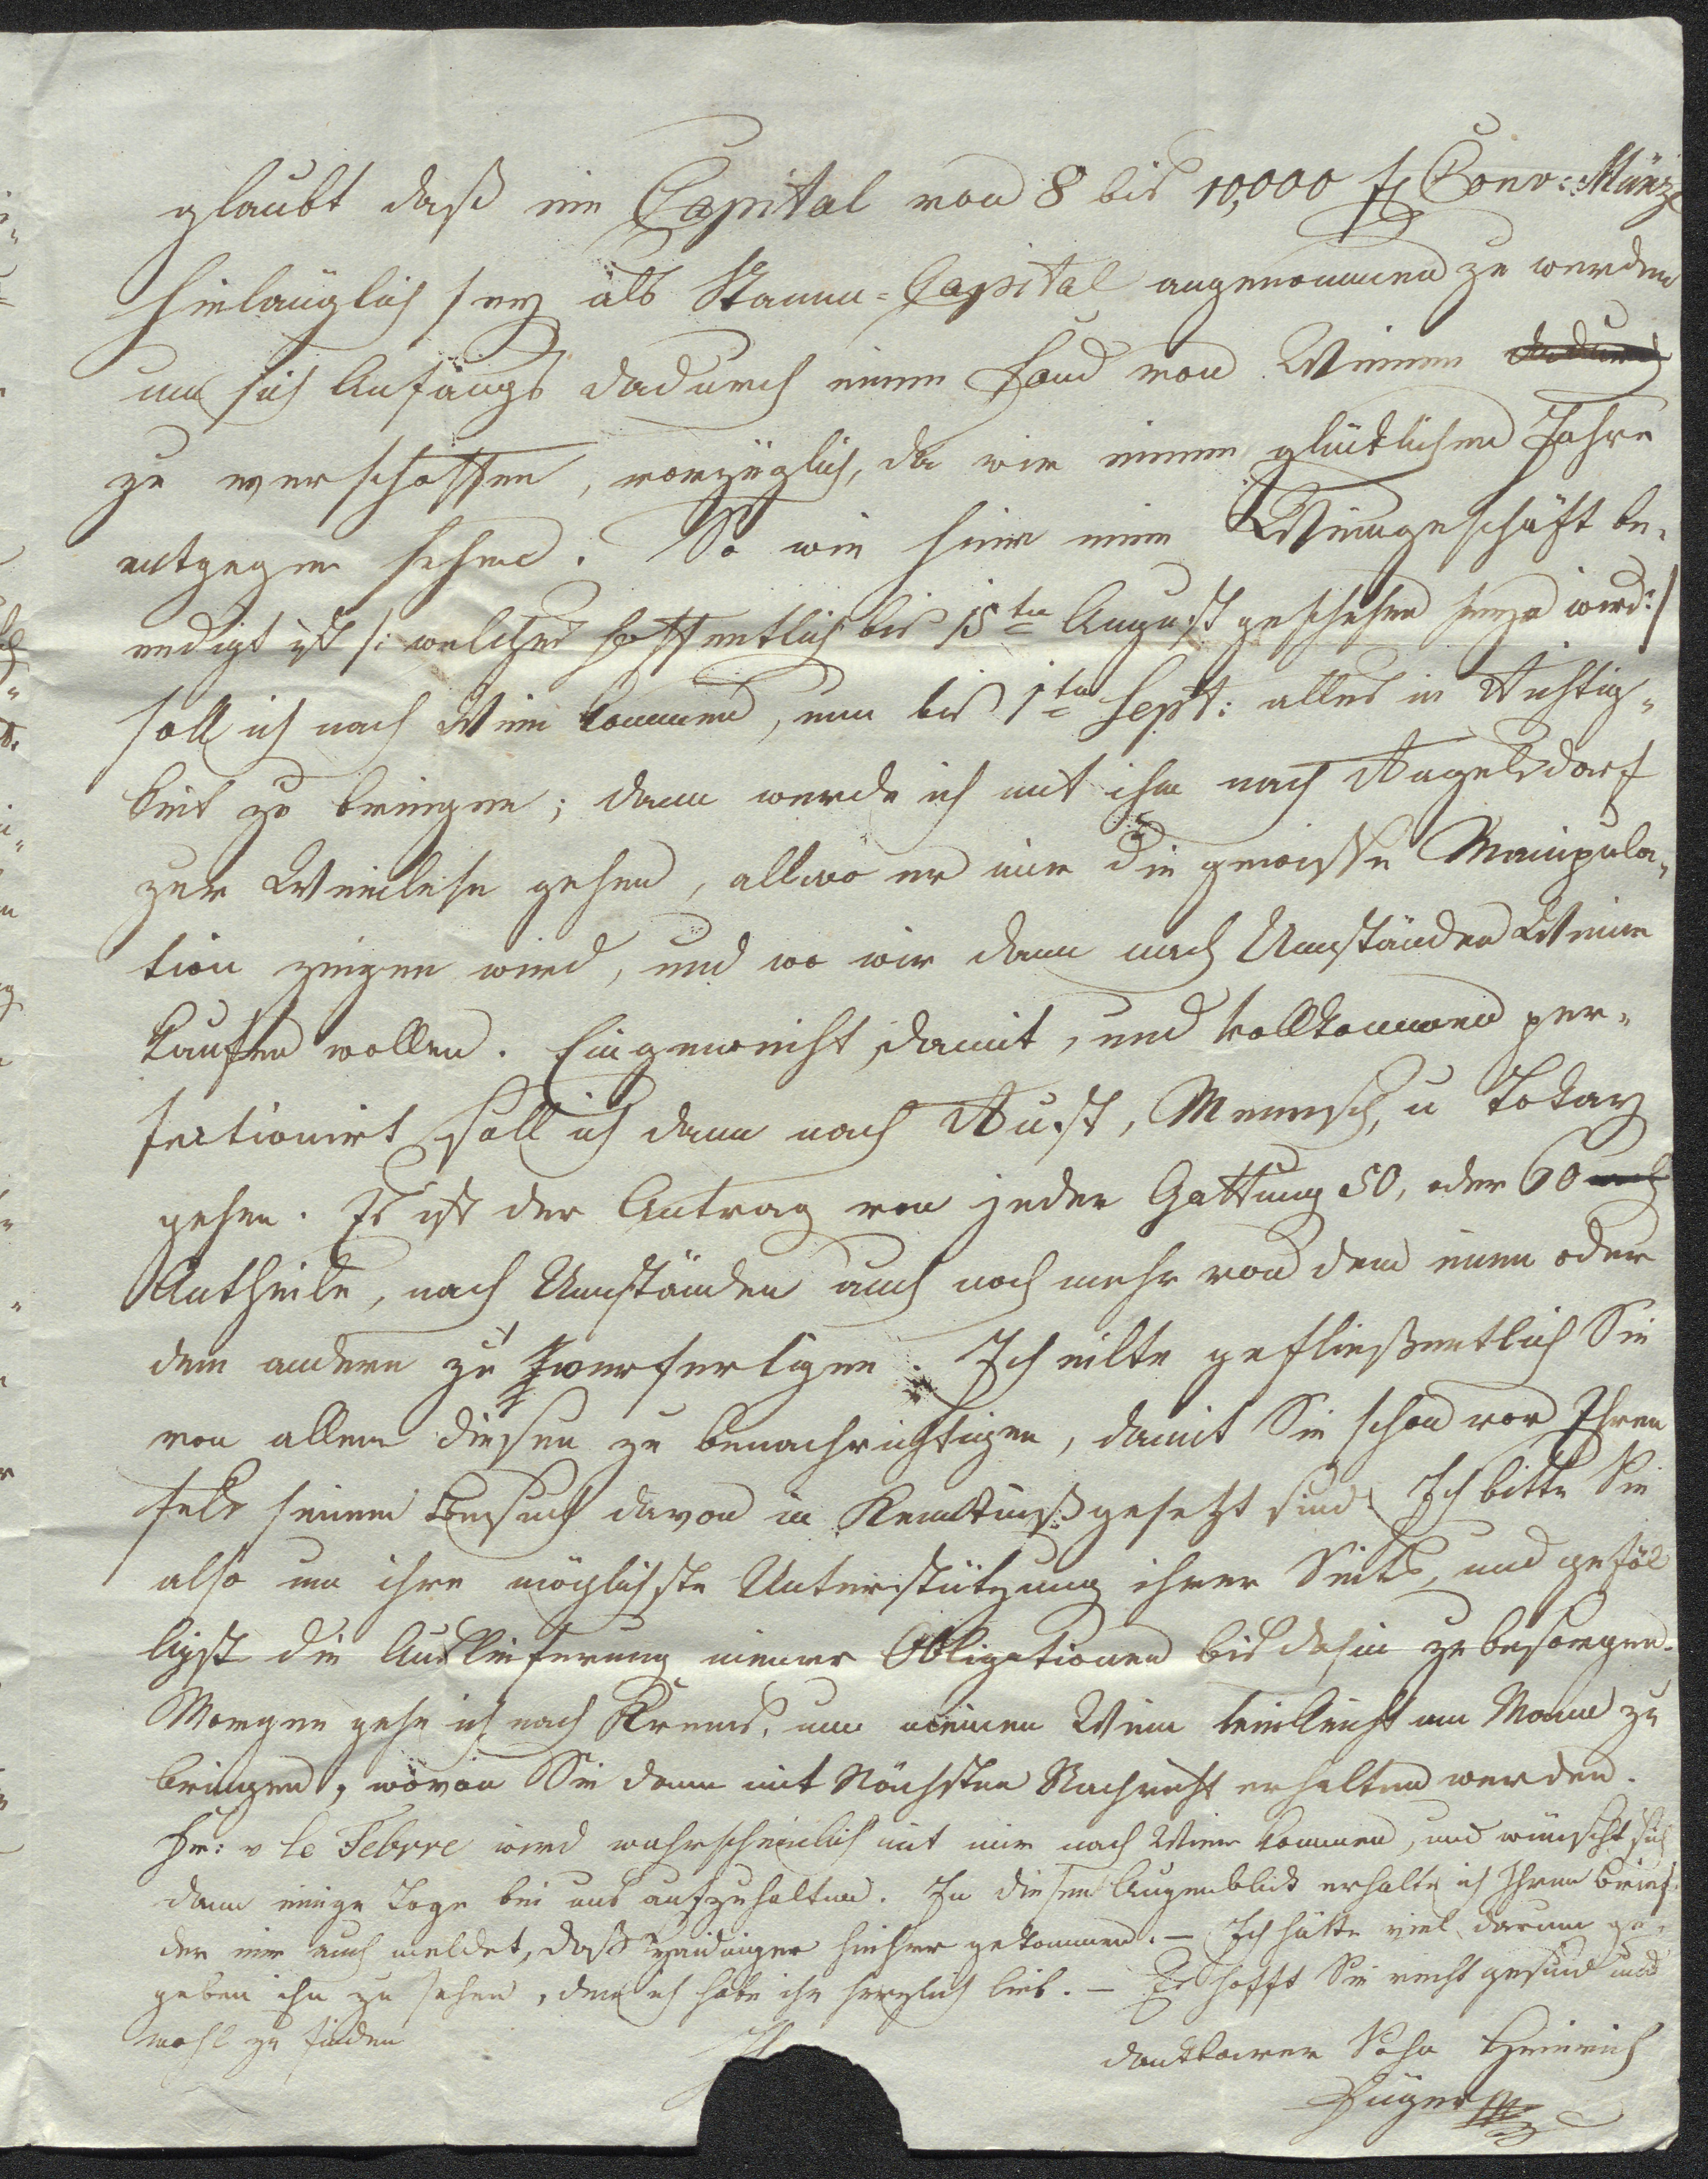 glaubt daß ein Capital von 8 bis 10,000 f Conv: Münz
hinlänglich sey als Stamm-Capital angenommen zu werden
um sich Anfangs dadurch einen Fond von Weinen dadurch
zu verschaffen, vorzüglich, da wir einem glücklichen Jahre
entgegen sehen. So wie hier mein Weingeschäft be-
endigt ist /: welches hoffentlich bis 15ten August geschehen seyn wird :/
soll ich nach Wien kommen, um bis 1ten Sept: alles in Richtig-
keit zu bringen; dann werde ich mit ihm nach Ragelsdorf
zur Weinlese gehen, allwo er mir die gewisse Manipula-
tion zeigen wird, und wo wir dann nach Umständen Weine
kaufen wollen. Eingeweiht damit, und vollkommen per-
fectionirt soll ich dann nach Rust, Menesch, u Tokay
gehen. Es ist der Antrag von jeder Gattung 50, oder 60
Antheile, nach Umständen auch noch mehr von dem einen oder
dem andern zu verfertigen. Ich eilte gefließentlich Sie
von allem diesen zu benachrichtigen, damit Sie schon vor Ihren
seinen Besuch davon in Kenntniß gesetzt sind. Ich bitte Sie
also um ihre möglichste Unterstützung ihrer Seits, und gefäl
ligst die Auslieferung meiner Obligationen bis dahin zu besorgen.
Morgen gehe ich nach Krems, um meinen Wein vielleicht am Mann zu
bringen, wovon Sie dann mit Nächsten Nachricht erhalten werden.
Hr: v le Febvre wird wahrscheinlich mit mir nach Wien kommen, und wünscht sich
dann einige Tage bei uns aufzuhalten. In diesem Augenblick erhalte ich Ihren Brief
der mir auch meldet, daß hieher gekommen. – Ich hätte viel darum ge-
geben ihn zu sehen, denn ich habe ihn herzlich lieb. – Es hofft Sie recht gesund und
wohl zu finden
dankbarer Sohn Heinrich
Füger